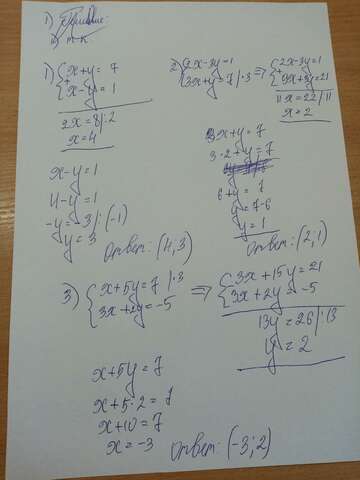 1)
1) { x+y = 7
x-y = 1
2x = 8 |:2
x = 4
x-y = 1
4-y = 1
-y = -3 | · (-1)
y = 3
Ответ: (4; 3)
2) { 2x-3y = 1
3x+y = 7 | ·3 => { 2x-3y = 1
9x+3y = 21
11x = 22 | 11
x = 2
3x+y = 7
3·2+y = 7
6+y = 7
y = 7-6
y = 1
Ответ: (2; 1)
3) { x+5y = 7 | ·3
3x+2y = -5 => { 3x+15y = 21
3x+2y = -5
13y = 26 | :13
y = 2
x+5y = 7
x+5·2 = 7
x+10 = 7
x = -3
Ответ: (-3; 2)